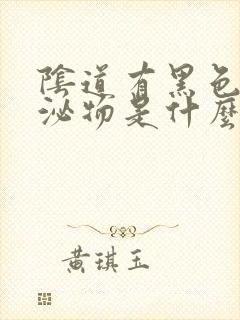 陰道有黑色
泌物是什麼
黃琪玉